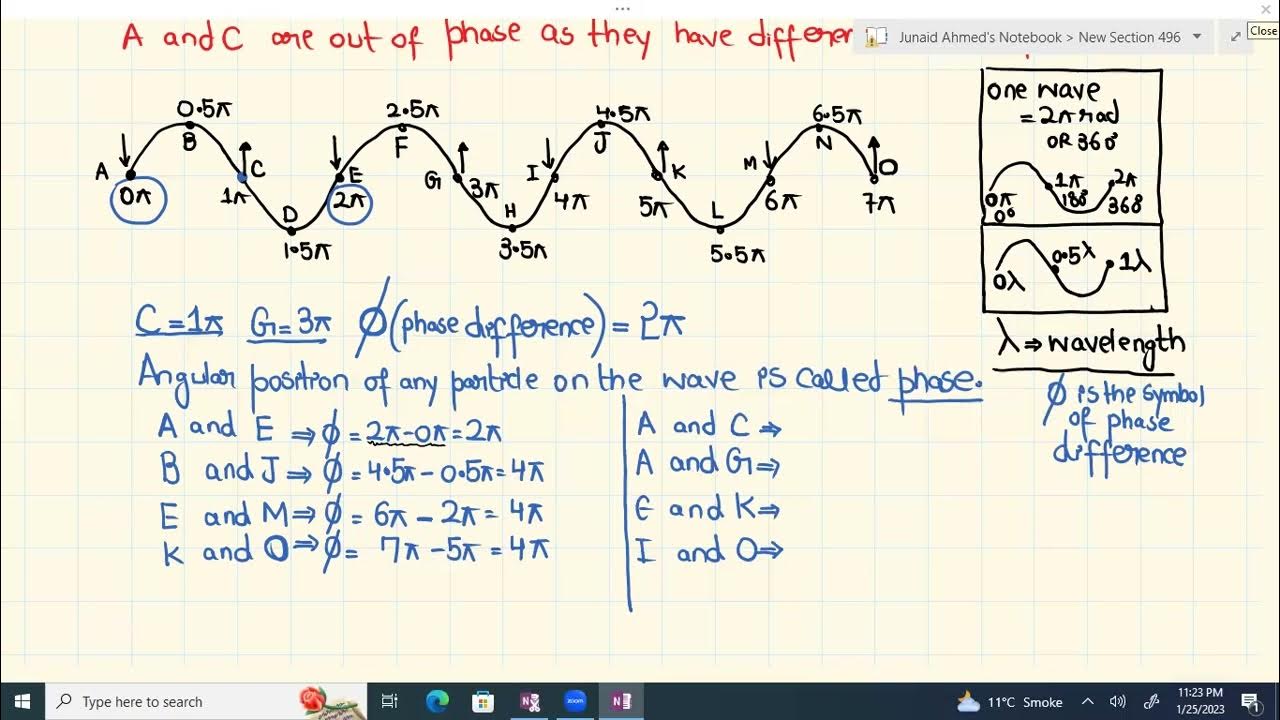 Close
A and C are out of phase as they have differen
Junaid Ahmed's Notebook > New Section 496
0.5π 2.5π 4.5π 6.5π
A B C D E F G H I J K L M N O
0π 1π 2π 3π 4π 5π 6π 7π
1.5π 3.5π 5.5π
one wave
= 2π rad
OR 360°
0π 1π 2π
0° 180° 360°
0λ 0.5λ 1λ
λ ⇒ wavelength
C = 1π G = 3π ϕ (phase difference) = 2π
Angular position of any particle on the wave is called phase.
ϕ is the symbol
of phase
difference
A and E ⇒ ϕ = 2π-0π = 2π
B and J ⇒ ϕ = 4.5π - 0.5π = 4π
E and M ⇒ ϕ = 6π - 2π = 4π
K and O ⇒ ϕ = 7π - 5π = 4π
A and C ⇒
A and G ⇒
E and K ⇒
I and O ⇒
Type here to search
11°C Smoke
11:23 PM
1/25/2023
1